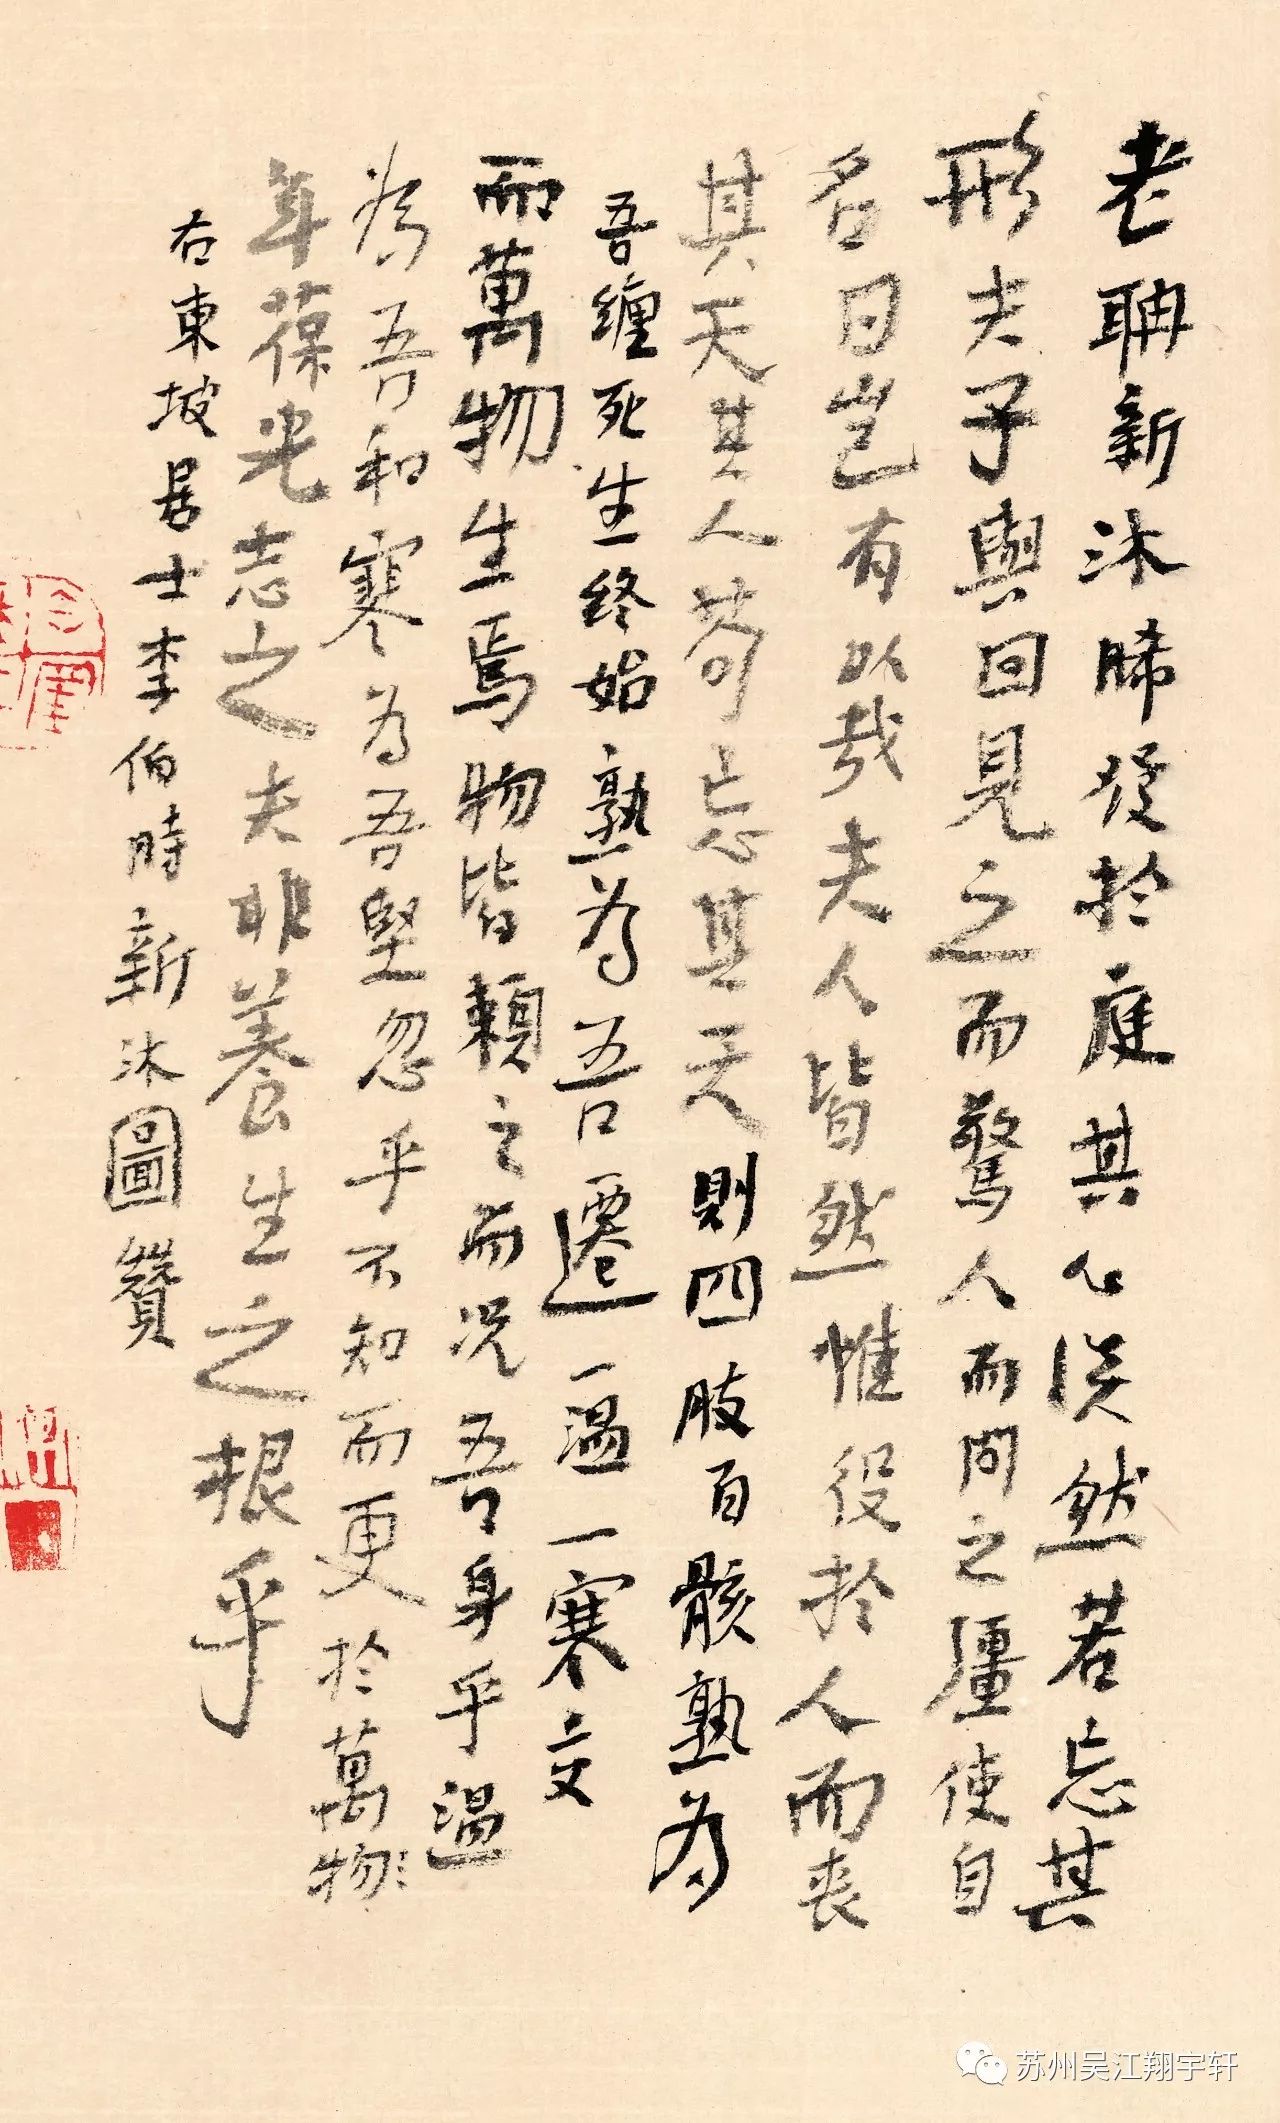 老聃新沐晞發於庭其心淡然若忘其
形夫子與回見之而驚人而問之彊使自
名曰豈有以哉夫人皆然惟役於人而喪
其天其人苟忘其天則四肢百骸孰為
吾纏死生終始孰為吾遷一溫一寒交
而萬物生焉物皆賴之而況吾身乎溫
為吾和寒為吾堅忽乎不知而更於萬物
年葆光志之夫非養生之根乎
右東坡居士李伯時新沐圖贊
苏州吴江翔宇轩